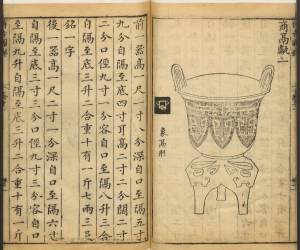 商鬲甗二
象鬲形
前一器高一尺二寸八分深自口至隔五寸
九分自隔至底四寸耳高二寸二分闊二寸
二分口徑九寸一分容自口至隔八升三合
自隔至底三升二合重十有一斤七兩三足
銘一字
後一器高一尺二寸一分深自口至隔六寸
自隔至底三寸三分口徑九寸三分容自口
至隔九升自隔至底三升二合重十有一斤